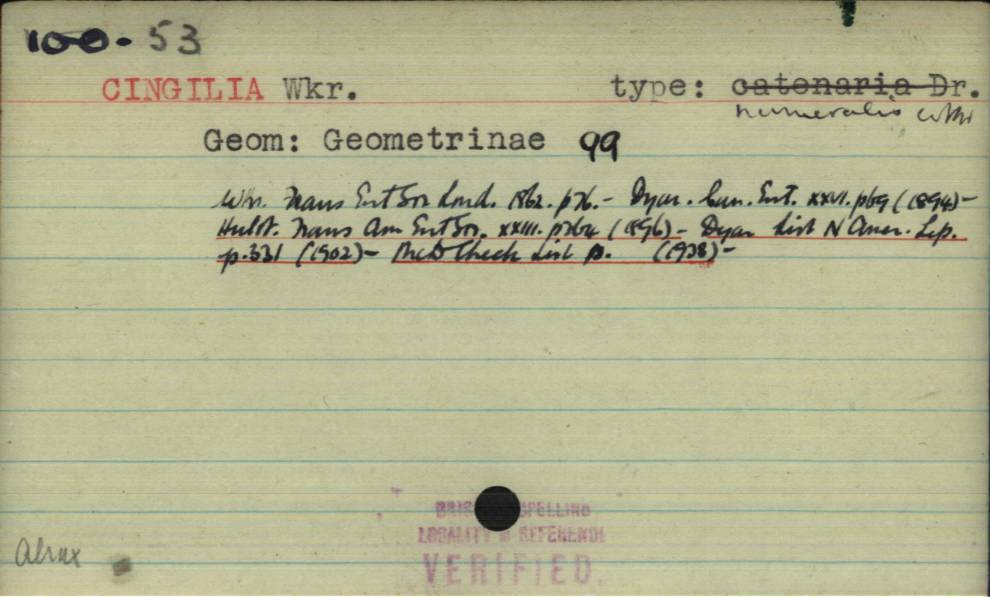 100. 53
CINGILIA Wkr. type: catenaria Dr.
humeralis Wlk
Geom: Geometrinae 99
Wkr. Trans Ent Soc Lond. 1862. p76. - Dyar. Can. Ent. XXVI. p69 (1894) -
Hulst. Trans Am Ent Soc. XXIII. p364 (1896) - Dyar List N Amer. Lep.
p.331 (1902) - McD Check List p. (1938) -
SPELLING
LOCALITY & REFERENCE
VERIFIED.